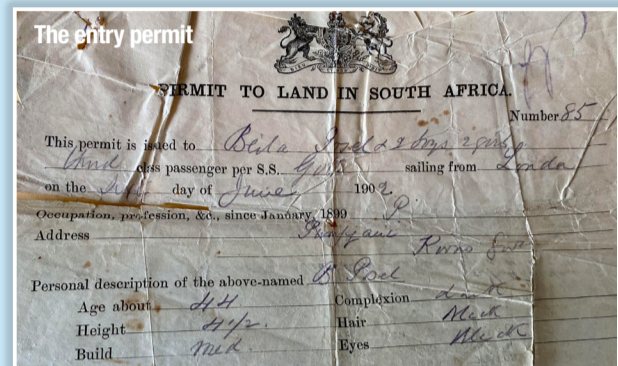 The entry permit
PERMIT TO LAND IN SOUTH AFRICA.
Number 85
This permit is issued to Beila Posel & 2 boys 2 girls
class passenger per S.S. sailing from London
on the day of June 1902
Occupation, profession, &c., since January, 1899
Address
Personal description of the above-named B. Posel
Age about 44 Complexion
Height 4 1/2 Hair Black
Build Med. Eyes Black